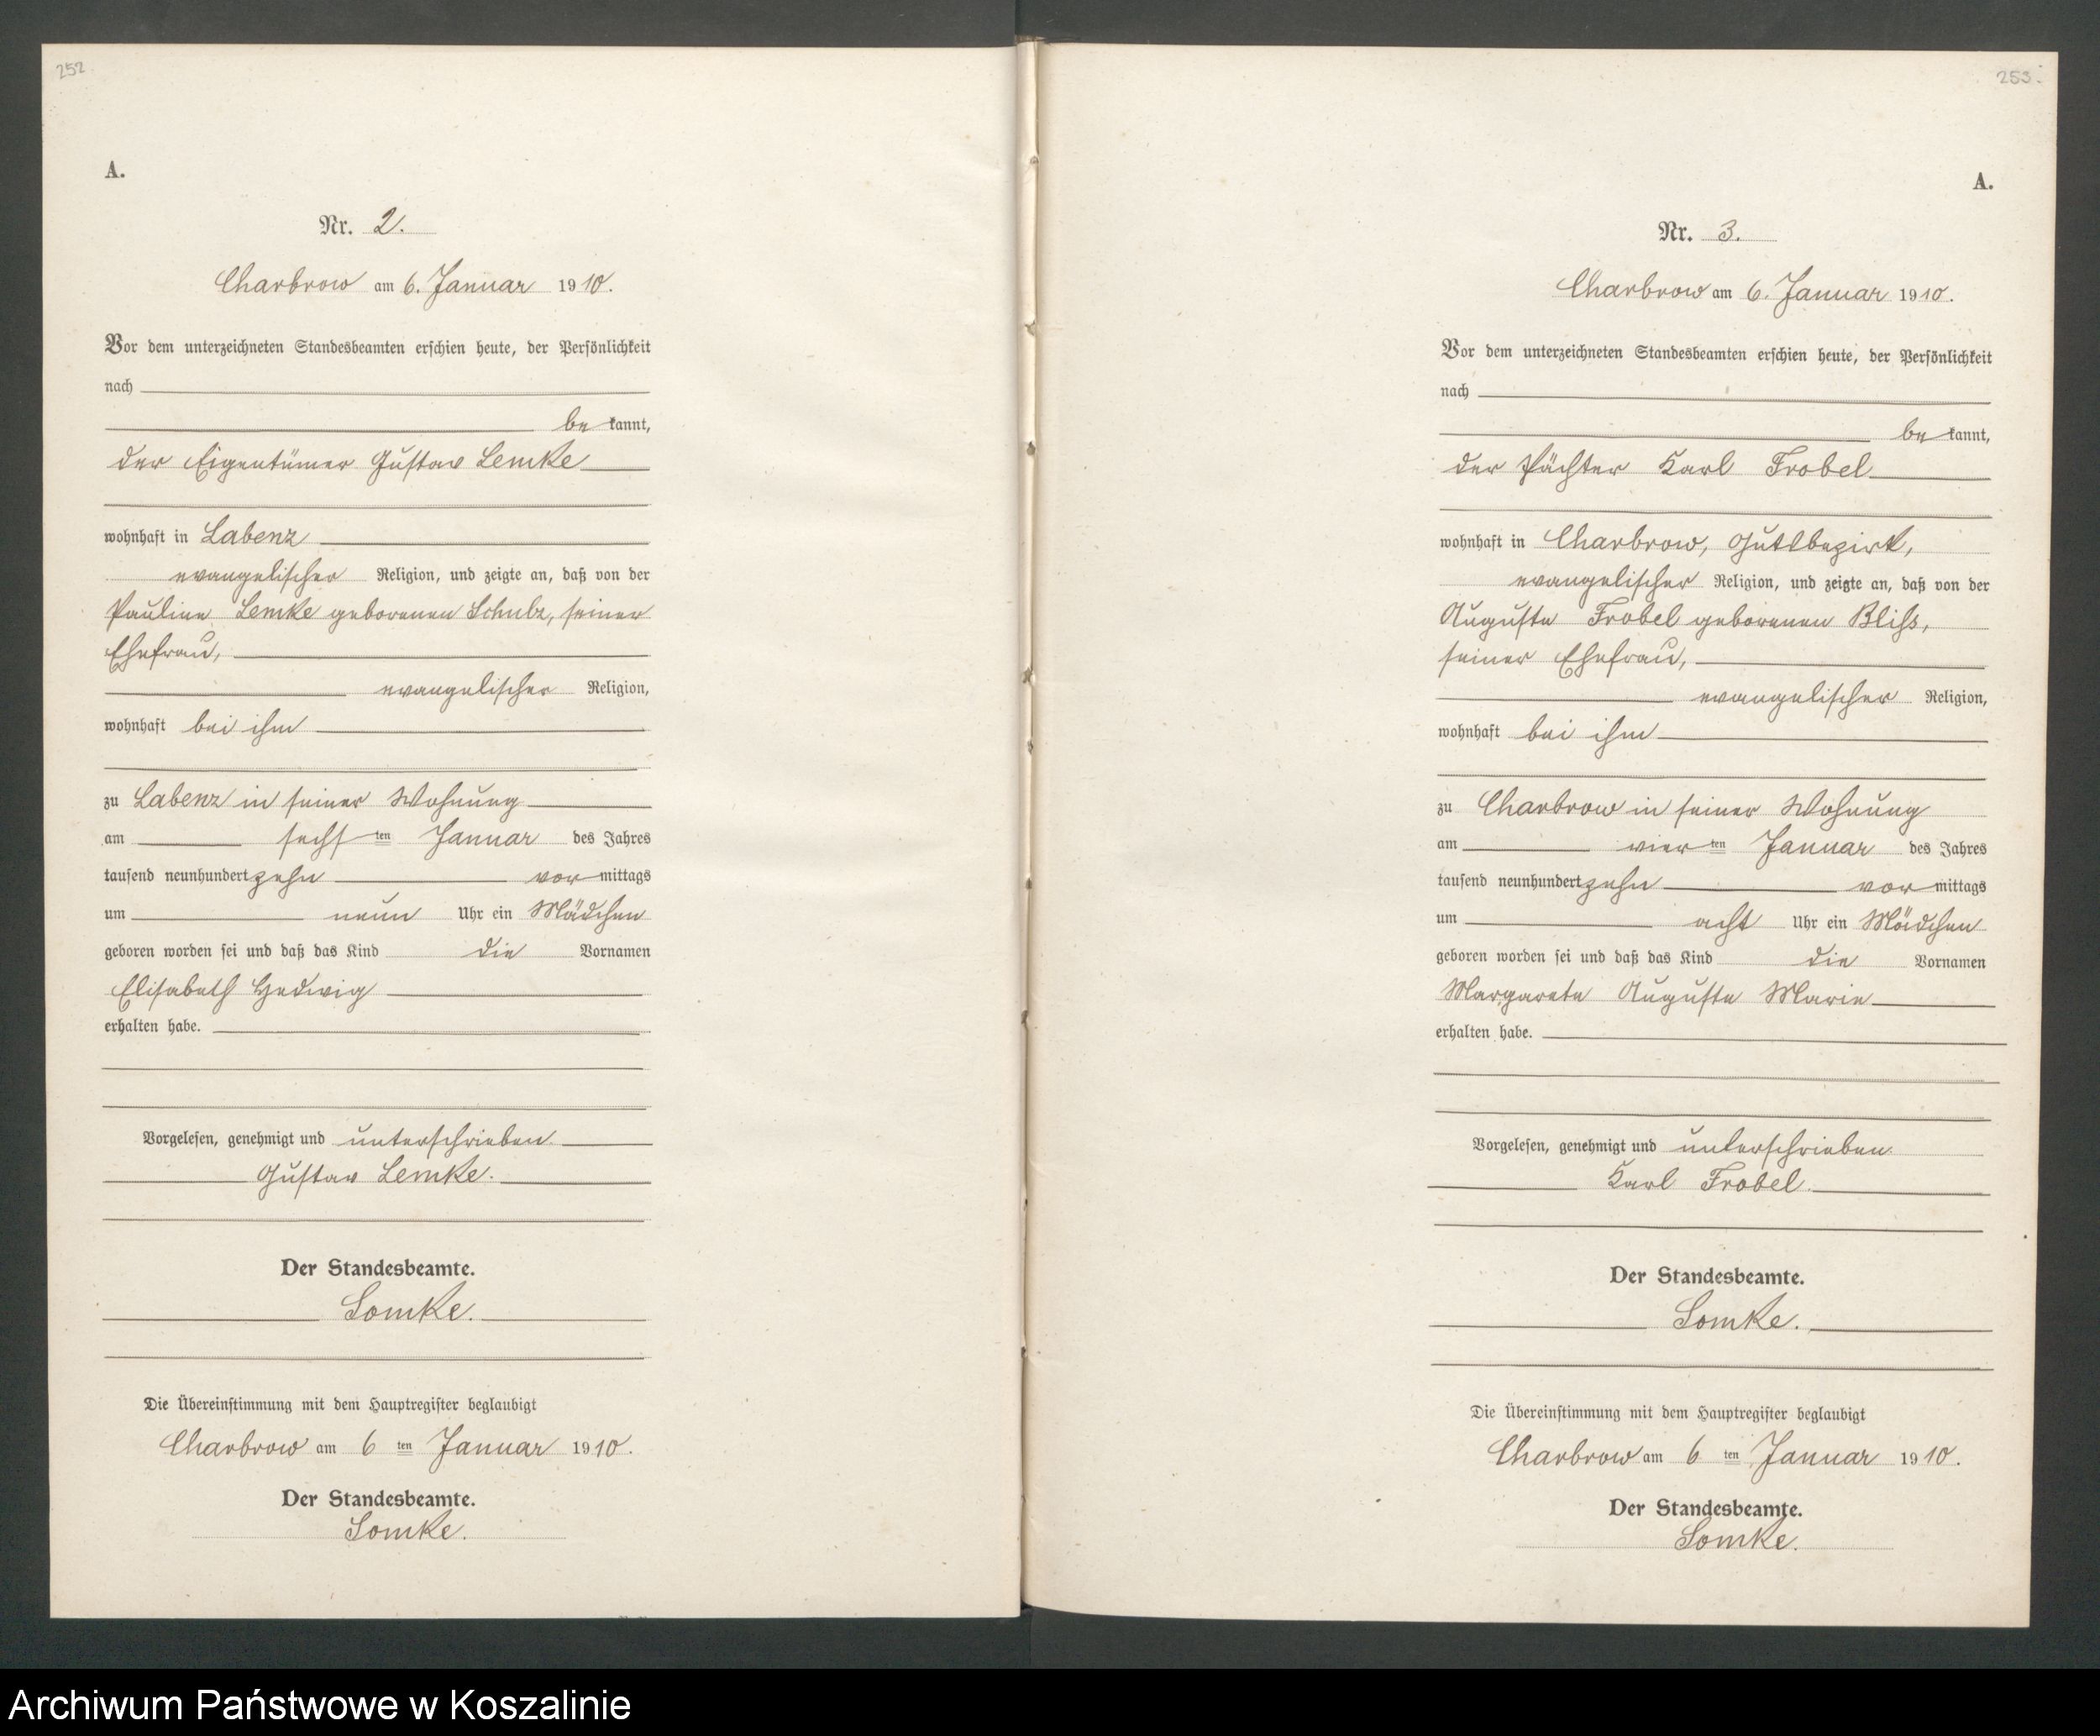 252.
A.
Nr. 2.
Charbrow am 6. Januar 1910.
Vor dem unterzeichneten Standesbeamten erschien heute, der Persönlichkeit
nach
be kannt,
der Eigentümer Gustav Lemke
wohnhaft in Labenz
evangelischer Religion, und zeigte an, daß von der
Pauline Lemke geborenen Schulz, seiner
Ehefrau,
evangelischer Religion,
wohnhaft bei ihm
zu Labenz in seiner Wohnung
am sechsten Januar des Jahres
tausend neunhundert zehn vormittags
um neun Uhr ein Mädchen
geboren worden sei und daß das Kind die Vornamen
Elisabeth Hedwig
erhalten habe.
Vorgelesen, genehmigt und unterschrieben
Gustav Lemke.
Der Standesbeamte.
Lomke.
Die Übereinstimmung mit dem Hauptregister beglaubigt
Charbrow am 6 ten Januar 1910.
Der Standesbeamte.
Lomke.
253.
A.
Nr. 3.
Charbrow am 6. Januar 1910.
Vor dem unterzeichneten Standesbeamten erschien heute, der Persönlichkeit
nach
be kannt,
der Pächter Karl Frobel
wohnhaft in Charbrow, Gutsbezirk,
evangelischer Religion, und zeigte an, daß von der
Auguste Frobel geborenen Bliss,
seiner Ehefrau,
evangelischer Religion,
wohnhaft bei ihm
zu Charbrow in seiner Wohnung
am vierten Januar des Jahres
tausend neunhundert zehn vormittags
um acht Uhr ein Mädchen
geboren worden sei und daß das Kind die Vornamen
Margarete Auguste Marie
erhalten habe.
Vorgelesen, genehmigt und unterschrieben
Karl Frobel.
Der Standesbeamte.
Lomke.
Die Übereinstimmung mit dem Hauptregister beglaubigt
Charbrow am 6 ten Januar 1910.
Der Standesbeamte.
Lomke.
Archiwum Państwowe w Koszalinie